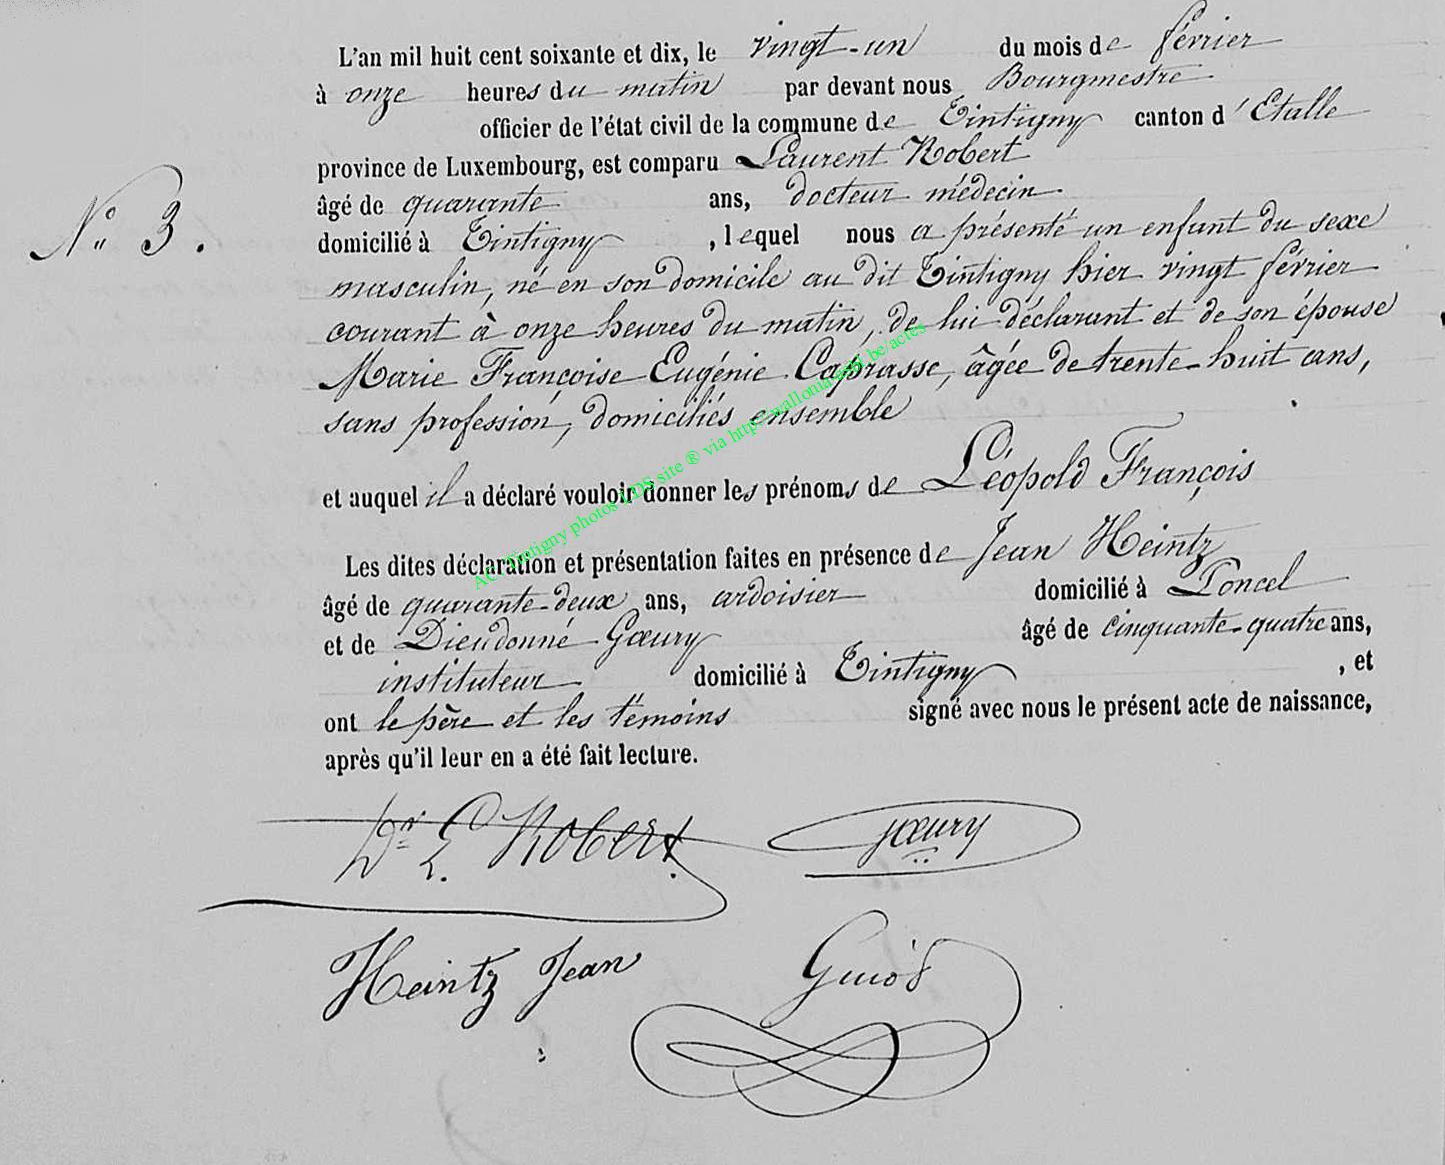 L'an mil huit cent soixante et dix, le vingt-un du mois de février
à onze heures du matin par devant nous Bourgmestre
officier de l'état civil de la commune de Tintigny canton d'Etalle
province de Luxembourg, est comparu Laurent Robert
âgé de quarante ans, docteur médecin
N° 3.
domicilié à Tintigny, lequel nous a présenté un enfant du sexe
masculin, né en son domicile au dit Tintigny hier vingt février
courant à onze heures du matin, de lui déclarant et de son épouse
Marie Françoise Eugénie Caprasse, âgée de trente-huit ans,
sans profession, domiciliés ensemble
et auquel il a déclaré vouloir donner les prénoms de Léopold François
AC Tintigny photos LDS site ® via http://wallonia-asbl.be/actes
Les dites déclaration et présentation faites en présence de Jean Heintz
âgé de quarante-deux ans, ardoisier domicilié à Poncel
et de Dieudonné Gœury âgé de cinquante-quatre ans,
instituteur domicilié à Tintigny, et
ont le père et les témoins signé avec nous le présent acte de naissance,
après qu'il leur en a été fait lecture.
Dr L. Robert. Gœury
Heintz Jean